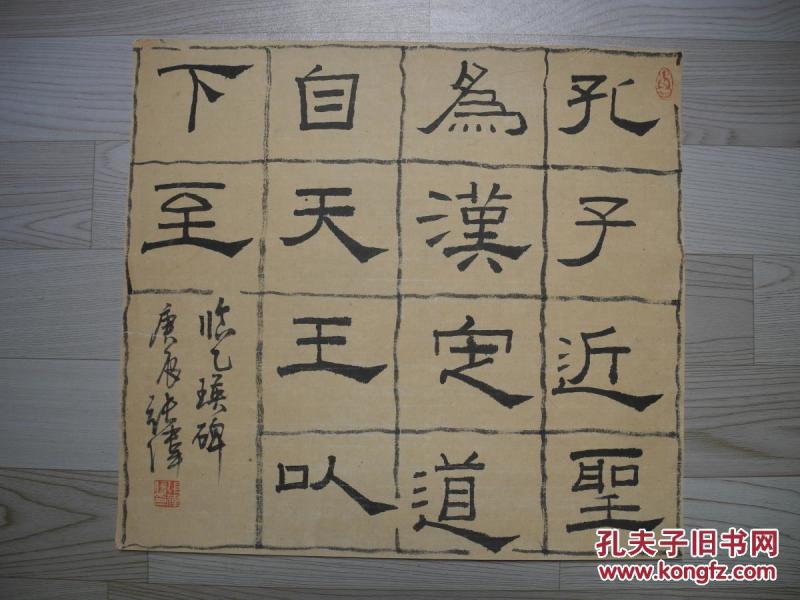 孔子近聖
為漢定道
自天王以
下至
临乙瑛碑
庚辰
孔夫子旧书网
www.kongfz.com